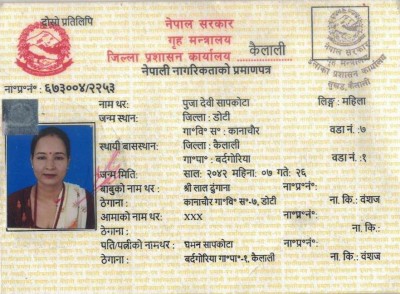 दोस्रो प्रतिलिपि
नेपाल सरकार
गृह मन्त्रालय
जिल्ला प्रशासन कार्यालय कैलाली
नेपाली नागरिकताको प्रमाणपत्र
ना॰प्र॰नं॰ : ६७३००४/२२५३
नाम थर: पुजा देवी सापकोटा लिङ्ग: महिला
जन्म स्थान: जिल्ला : डोटी
गा॰वि॰ स॰ : कानाचौर वडा नं.:७
स्थायी बासस्थान: जिल्ला : कैलाली
गा॰पा॰ : बर्दगोरिया वडा नं.:१
जन्म मिति: साल: २०४२ महिना: ०७ गते: २६
बाबुको नाम थर: श्री लाल ढुंगाना ना॰प्र॰नं॰:
ठेगाना: कानाचौर गा॰वि॰ स॰-७, डोटी ना. कि.: वंशज
आमाको नाम थर: xxx ना॰प्र॰नं॰:
ठेगाना: ना. कि.:
पति/पत्नीको नामथर: घमन सापकोटा ना॰प्र॰नं॰:
ठेगाना: बर्दगोरिया गा॰पा॰-१, कैलाली ना. कि.: वंशज